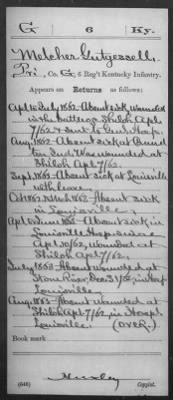 G 6 Ky.
Melcher Gutgesell,
Pri, Co. G, 6 Reg't Kentucky Infantry.
Appears on Returns as follows:
Apl to July 1862 Absent sick, wounded
in the battle of Shiloh Apl
7/62 & sent to Gen. Hosp.
Aug. 1862 Absent sick at
Ind. Was wounded at
Shiloh Apl 7/62.
Sept. 1862 Absent sick at Louisville
with leave.
Oct. 1862 to Mch 1863 Absent sick
in Louisville.
Apl to June 1863 Absent sick in
Louisville Hosp. since
Apl 30/62, wounded at
Shiloh Apl 7/62.
July 1863 Absent wounded at
Stone River, Dec 31/62, in hosp
Louisville.
Aug. 1863 Absent wounded at
Shiloh Apl 7/62, in Hospl
Louisville. (OVER.)
Book mark
Huxley
(646) Copyist.